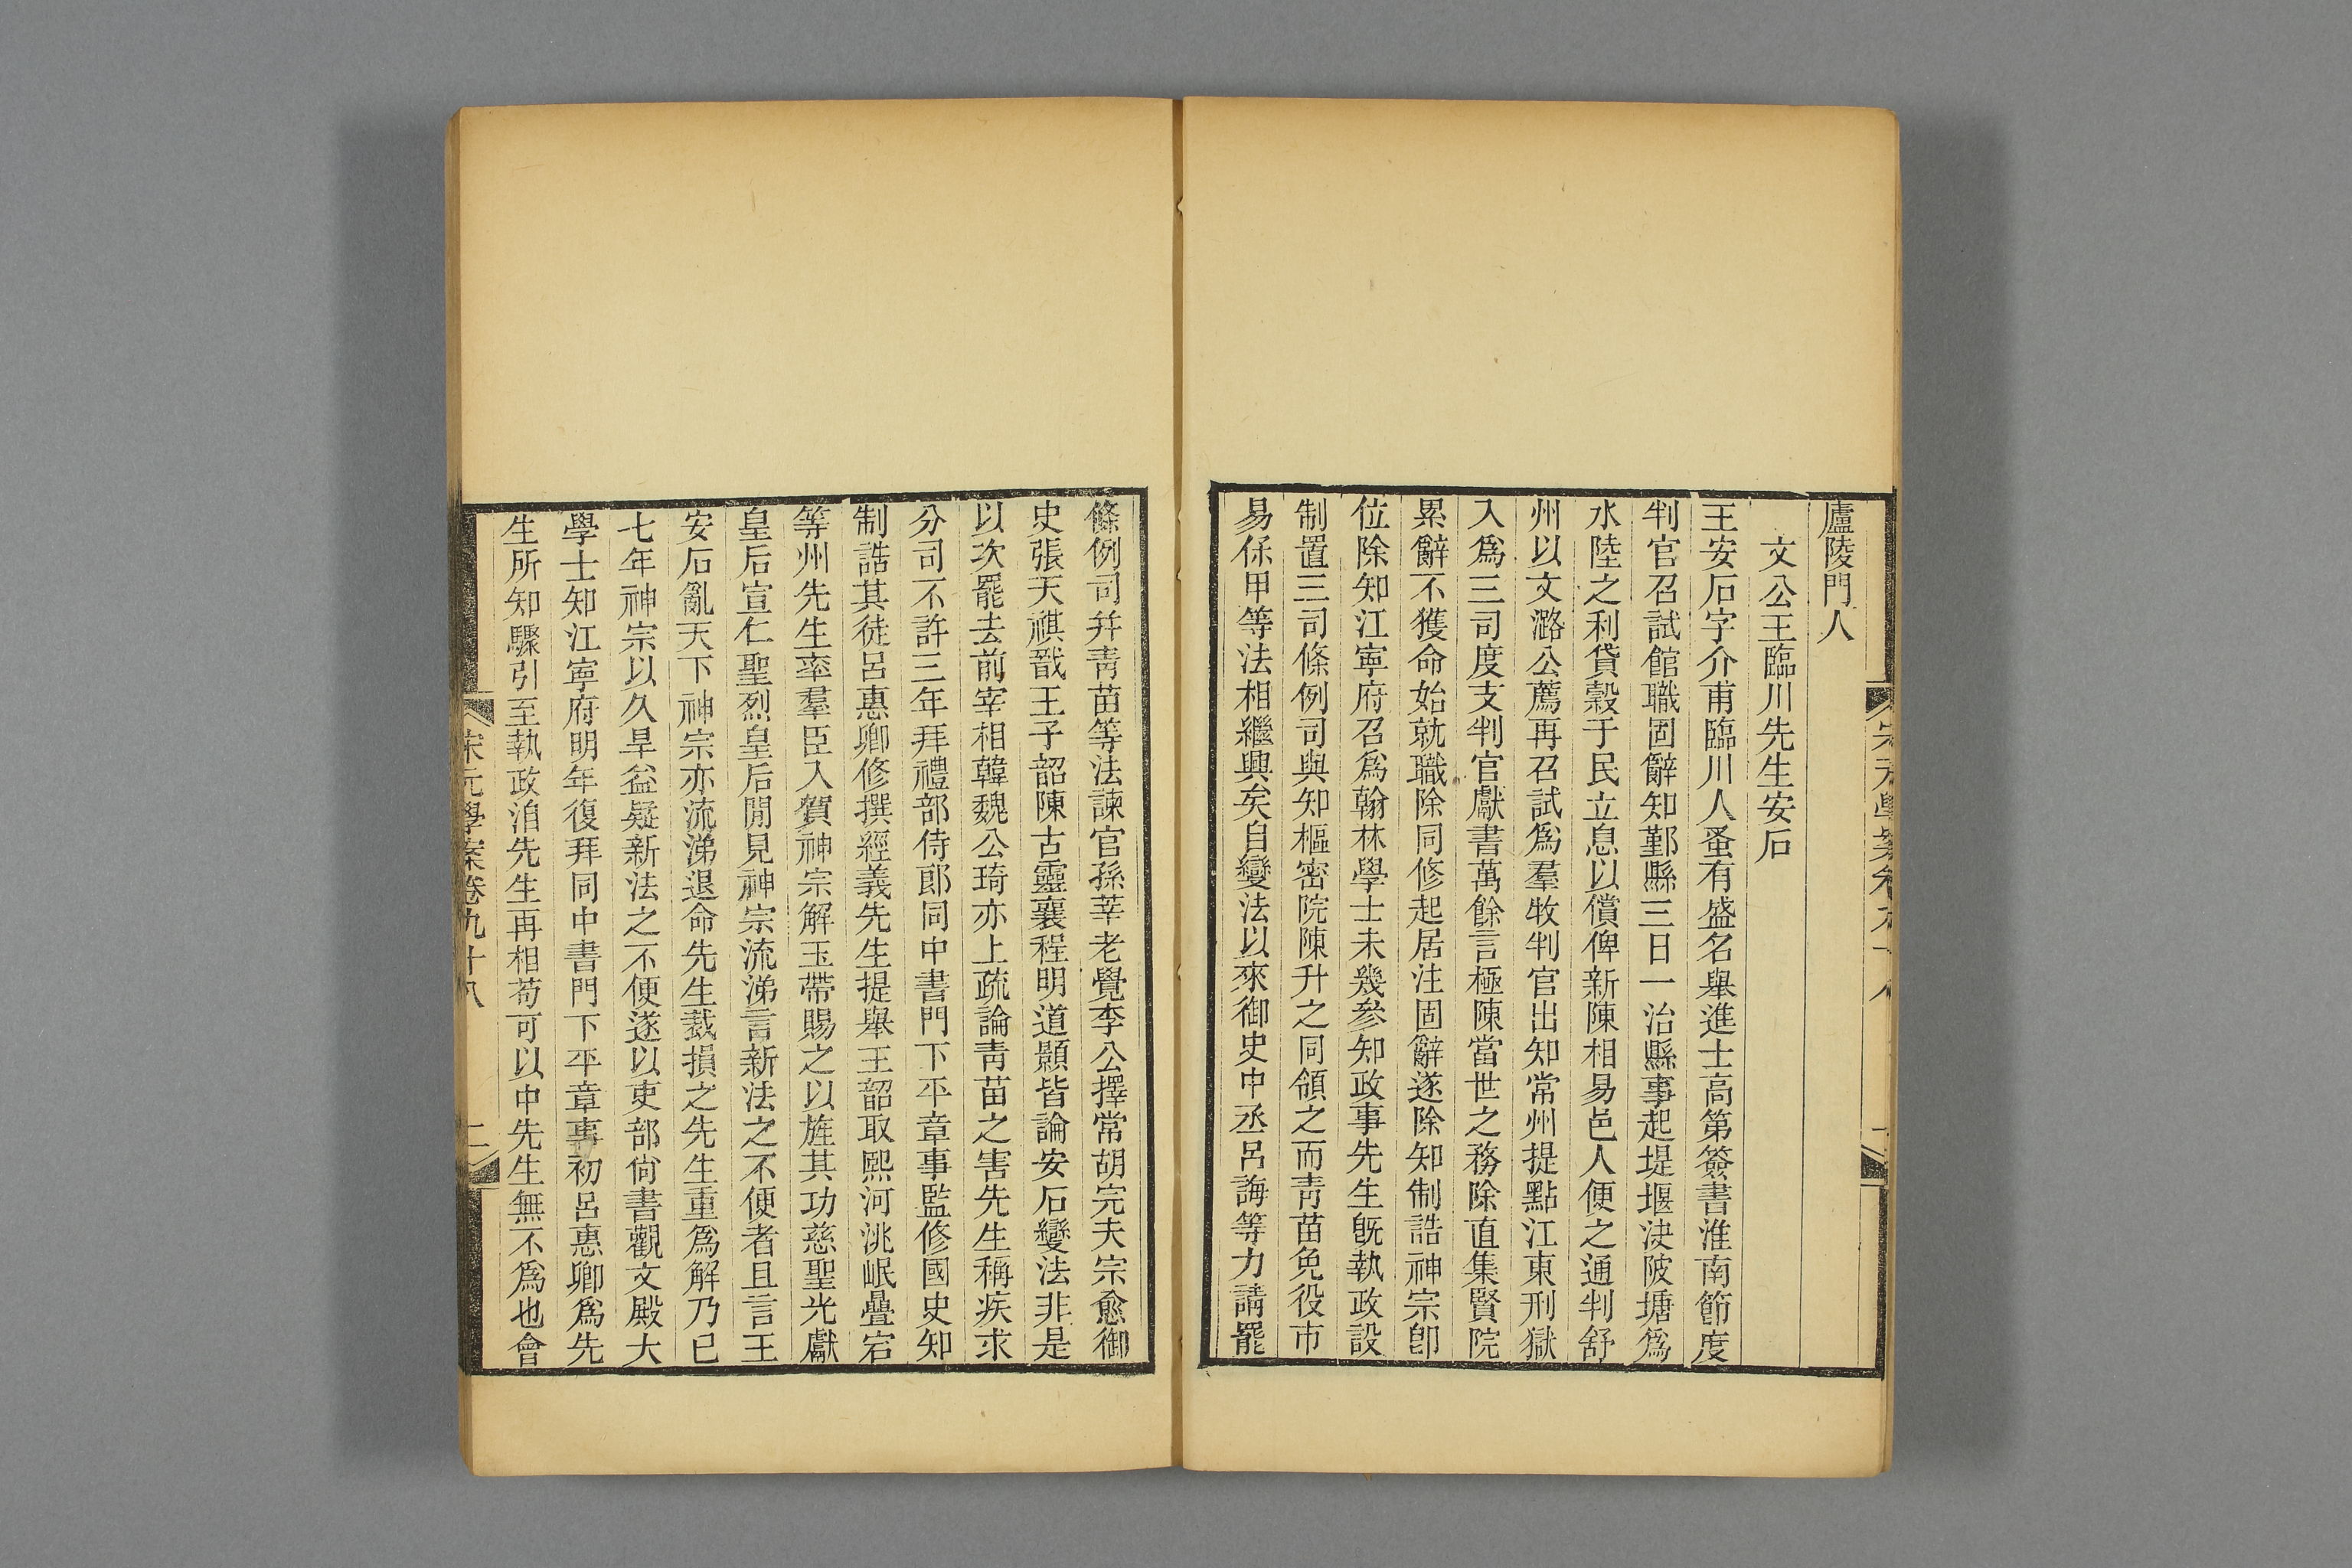 廬陵門人
文公王臨川先生安石
王安石字介甫臨川人蚤有盛名舉進士高第簽書淮南節度
判官召試館職固辭知鄞縣三日一治縣事起堤堰決陂塘爲
水陸之利貸穀于民立息以償俾新陳相易邑人便之通判舒
州以文潞公薦再召試爲羣牧判官出知常州提點江東刑獄
入爲三司度支判官獻書萬餘言極陳當世之務除直集賢院
累辭不獲命始就職除同修起居注固辭遂除知制誥神宗卽
位除知江寧府召爲翰林學士未幾參知政事先生旣執政設
制置三司條例司與知樞密院陳升之同領之而靑苗免役市
易保甲等法相繼興矣自變法以來御史中丞呂誨等力請罷
條例司幷靑苗等法諫官孫莘老覺李公擇常胡完夫宗愈御
史張天祺戩王子韶陳古靈襄程明道顥皆論安石變法非是
以次罷去前宰相韓魏公琦亦上疏論靑苗之害先生稱疾求
分司不許三年拜禮部侍郎同中書門下平章事監修國史知
制誥其徒呂惠卿修撰經義先生提舉王韶取熙河洮岷疊宕
等州先生率羣臣入賀神宗解玉帶賜之以旌其功慈聖光獻
皇后宣仁聖烈皇后閒見神宗流涕言新法之不便者且言王
安石亂天下神宗亦流涕退命先生裁損之先生重爲解乃已
七年神宗以久旱益疑新法之不便遂以吏部尙書觀文殿大
學士知江寧府明年復拜同中書門下平章事初呂惠卿爲先
生所知驟引至執政洎先生再相苟可以中先生無不爲也會
宋元學案卷九十八
二